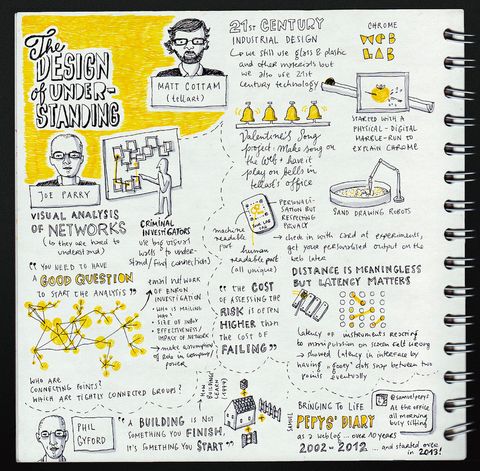 The
DESIGN
of UNDER-
STANDING
MATT COTTAM
(tellart)
21ST CENTURY
INDUSTRIAL DESIGN
we still use glass & plastic
and other materials but
we also use 21st
century technology
CHROME
WEB
LAB
STARTED WITH A
PHYSICAL-DIGITAL
MARBLE-RUN TO
EXPLAIN CHROME
Valentine's Song
project: Make song on
the web + have it
play on bells in
tellart's office
SAND DRAWING ROBOTS
JOE PARRY
VISUAL ANALYSIS
OF NETWORKS
(as they are hard to
understand)
CRIMINAL
INVESTIGATORS
use big visual
walls to under-
stand/find connections
PERSONALI-
SATION BUT
RESPECTING
PRIVACY
machine
readable
part
human
readable part
(all unique)
check in with card at experiments,
get your personalised output on the
web later
"YOU NEED TO HAVE
A GOOD QUESTION
TO START THE ANALYSIS"
email network
OF ENRON
INVESTIGATION
WHO IS MAILING
WHO?
SIZE OF INFO
EFFECTIVENESS/
IMPACT OF NETWORK
make assumptions
of role in company/
power
WHO ARE
CONNECTING POINTS?
WHICH ARE TIGHTLY CONNECTED GROUPS?
"THE COST
OF ASSESSING THE
RISK IS OFTEN
HIGHER THAN
THE COST OF
FAILING"
DISTANCE IS MEANINGLESS
BUT LATENCY MATTERS
latency of instruments reacting
to manipulation on screen felt wrong
→ showed latency in interface by
having a gooey dot snap between two
points eventually
PHIL
GYFORD
"A BUILDING IS NOT
SOMETHING YOU FINISH,
IT'S SOMETHING YOU START"
HOW
BUILDINGS
LEARN
SAMUEL
BRINGING TO LIFE
PEPYS' DIARY
as a weblog... over 10 YEARS
2002-2012 ... and started over
in 2013!
@samuelpepys
At the office
all morning
busy sitting